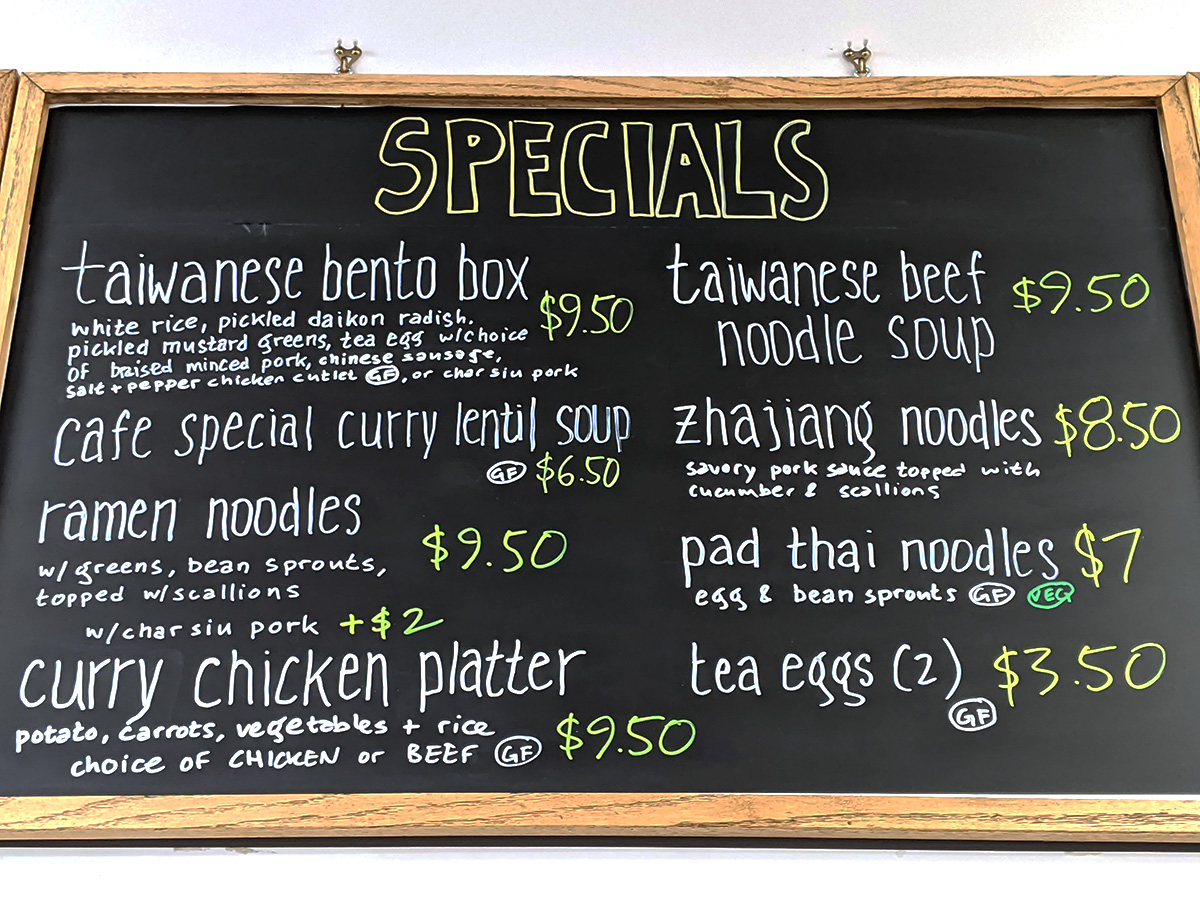 SPECIALS
taiwanese bento box $9.50
white rice, pickled daikon radish.
pickled mustard greens, tea egg w/choice
of braised minced pork, chinese sausage,
salt + pepper chicken cutlet GF, or char siu pork
cafe special curry lentil soup
GF $6.50
ramen noodles
$9.50
w/ greens, bean sprouts,
topped w/scallions
w/char siu pork +$2
curry chicken platter
potato, carrots, vegetables + rice
choice OF CHICKEN or BEEF GF $9.50
taiwanese beef $9.50
noodle soup
zhajiang noodles $8.50
savory pork sauce topped with
cucumber & scallions
pad thai noodles $7
egg & bean sprouts GF VEG
tea eggs (2) $3.50
GF